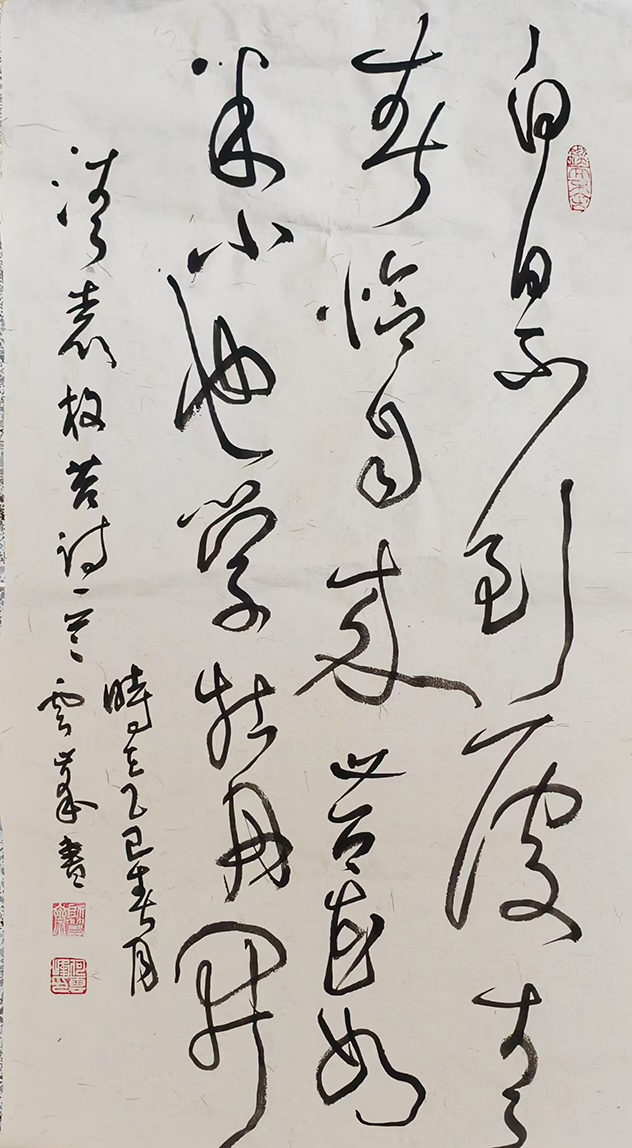 白日不到處青
春恰自来苔花如
米小也学牡丹開
清袁枚苔诗一首
時在乙巳春月
雲峯書